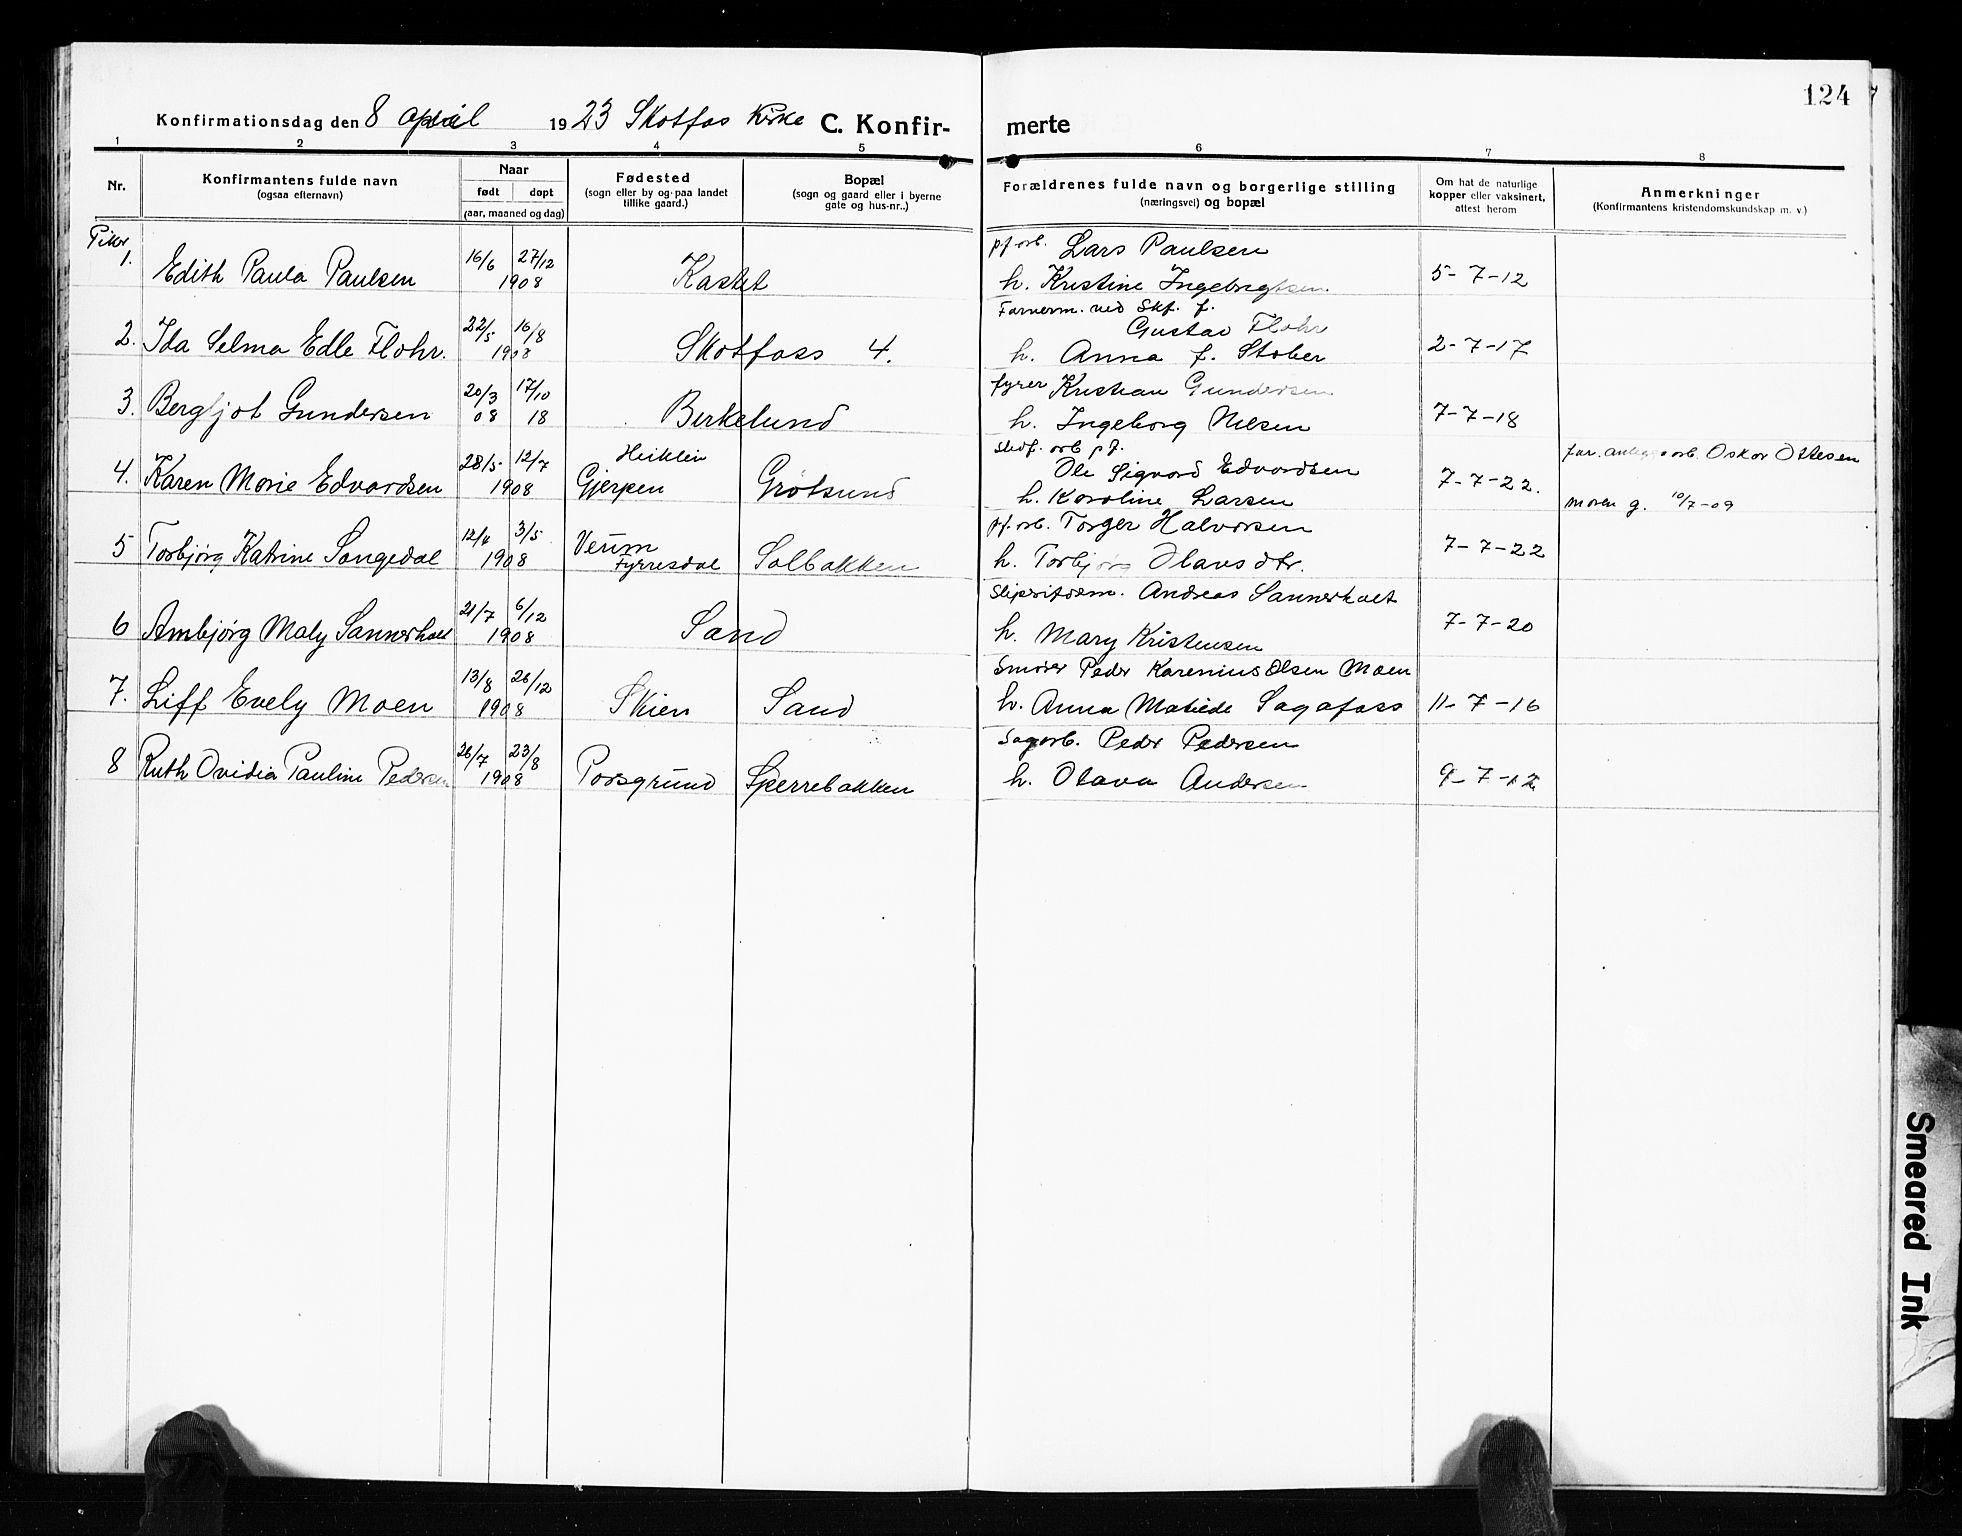 124
Konfirmationsdag den 8 april 1923 Skotfos Kirke C. Konfir- merte
1 2 3 4 5 6 7 8
Nr.
Konfirmantens fulde navn
(ogsaa efternavn)
Naar
født døpt
(aar, maaned og dag)
Fødested
(sogn eller by og paa landet
tillike gaard.)
Bopæl
(sogn og gaard eller i byerne
gate og hus-nr..)
Forældrenes fulde navn og borgerlige stilling
(næringsvei) og bopæl
Om hat de naturlige
kopper eller vaksinert,
attest herom
Anmerkninger
(Konfirmantens kristendomskundskap m. v.)
Piker
1. Edith Paula Paulsen 16/6 27/12 1908 Kastet
pf. arb. Lars Paulsen
h. Kristine Ingebregtsen. 5-7-12
2. Ida Selma Edle Flohr. 22/5 16/8 1908 Skotfoss 4.
Farverm. ved Skf. f.
Gustav Flohr
h. Anna f. Stober 2-7-17
3. Bergljot Gundersen 20/3 08 17/10 18 Birkelund
fyrer Kristian Gundersen
h. Ingeborg Nilsen 7-7-18
4. Karen Marie Edvardsen 28/5 12/7 1908 Gjerpen Grøtsund
Stedf. arb pf.
Ole Sigvard Edvardsen
h. Karoline Larsen 7-7-22.
far. arb. Oskar Ottesen
moren g. 10/7-09
5 Torbjørg Katrine Songedal 12/4 3/5 1908
Fyrresdal Solbakken
pf. arb. Torger Halvorsen
h. Torbjørg Olavsdtr. 7-7-22
6 Ambjørg Maly Sannerholt 21/7 6/12 1908 Sand
Andreas Sannerholt
h. Mary Kristensen 7-7-20
7. Liff Evely Moen 13/8 26/12 1908 Skien Sand
Smører Peder Karenius Olsen Moen
h. Anna Matilde Sagafoss 11-7-16
8 Ruth Ovidia Pauline Pedersen 26/7 23/8 1908 Porsgrund Sperrebakken
Sagarb. Peder Pedersen
h. Olava Andersen 9-7-12
Smeared Ink